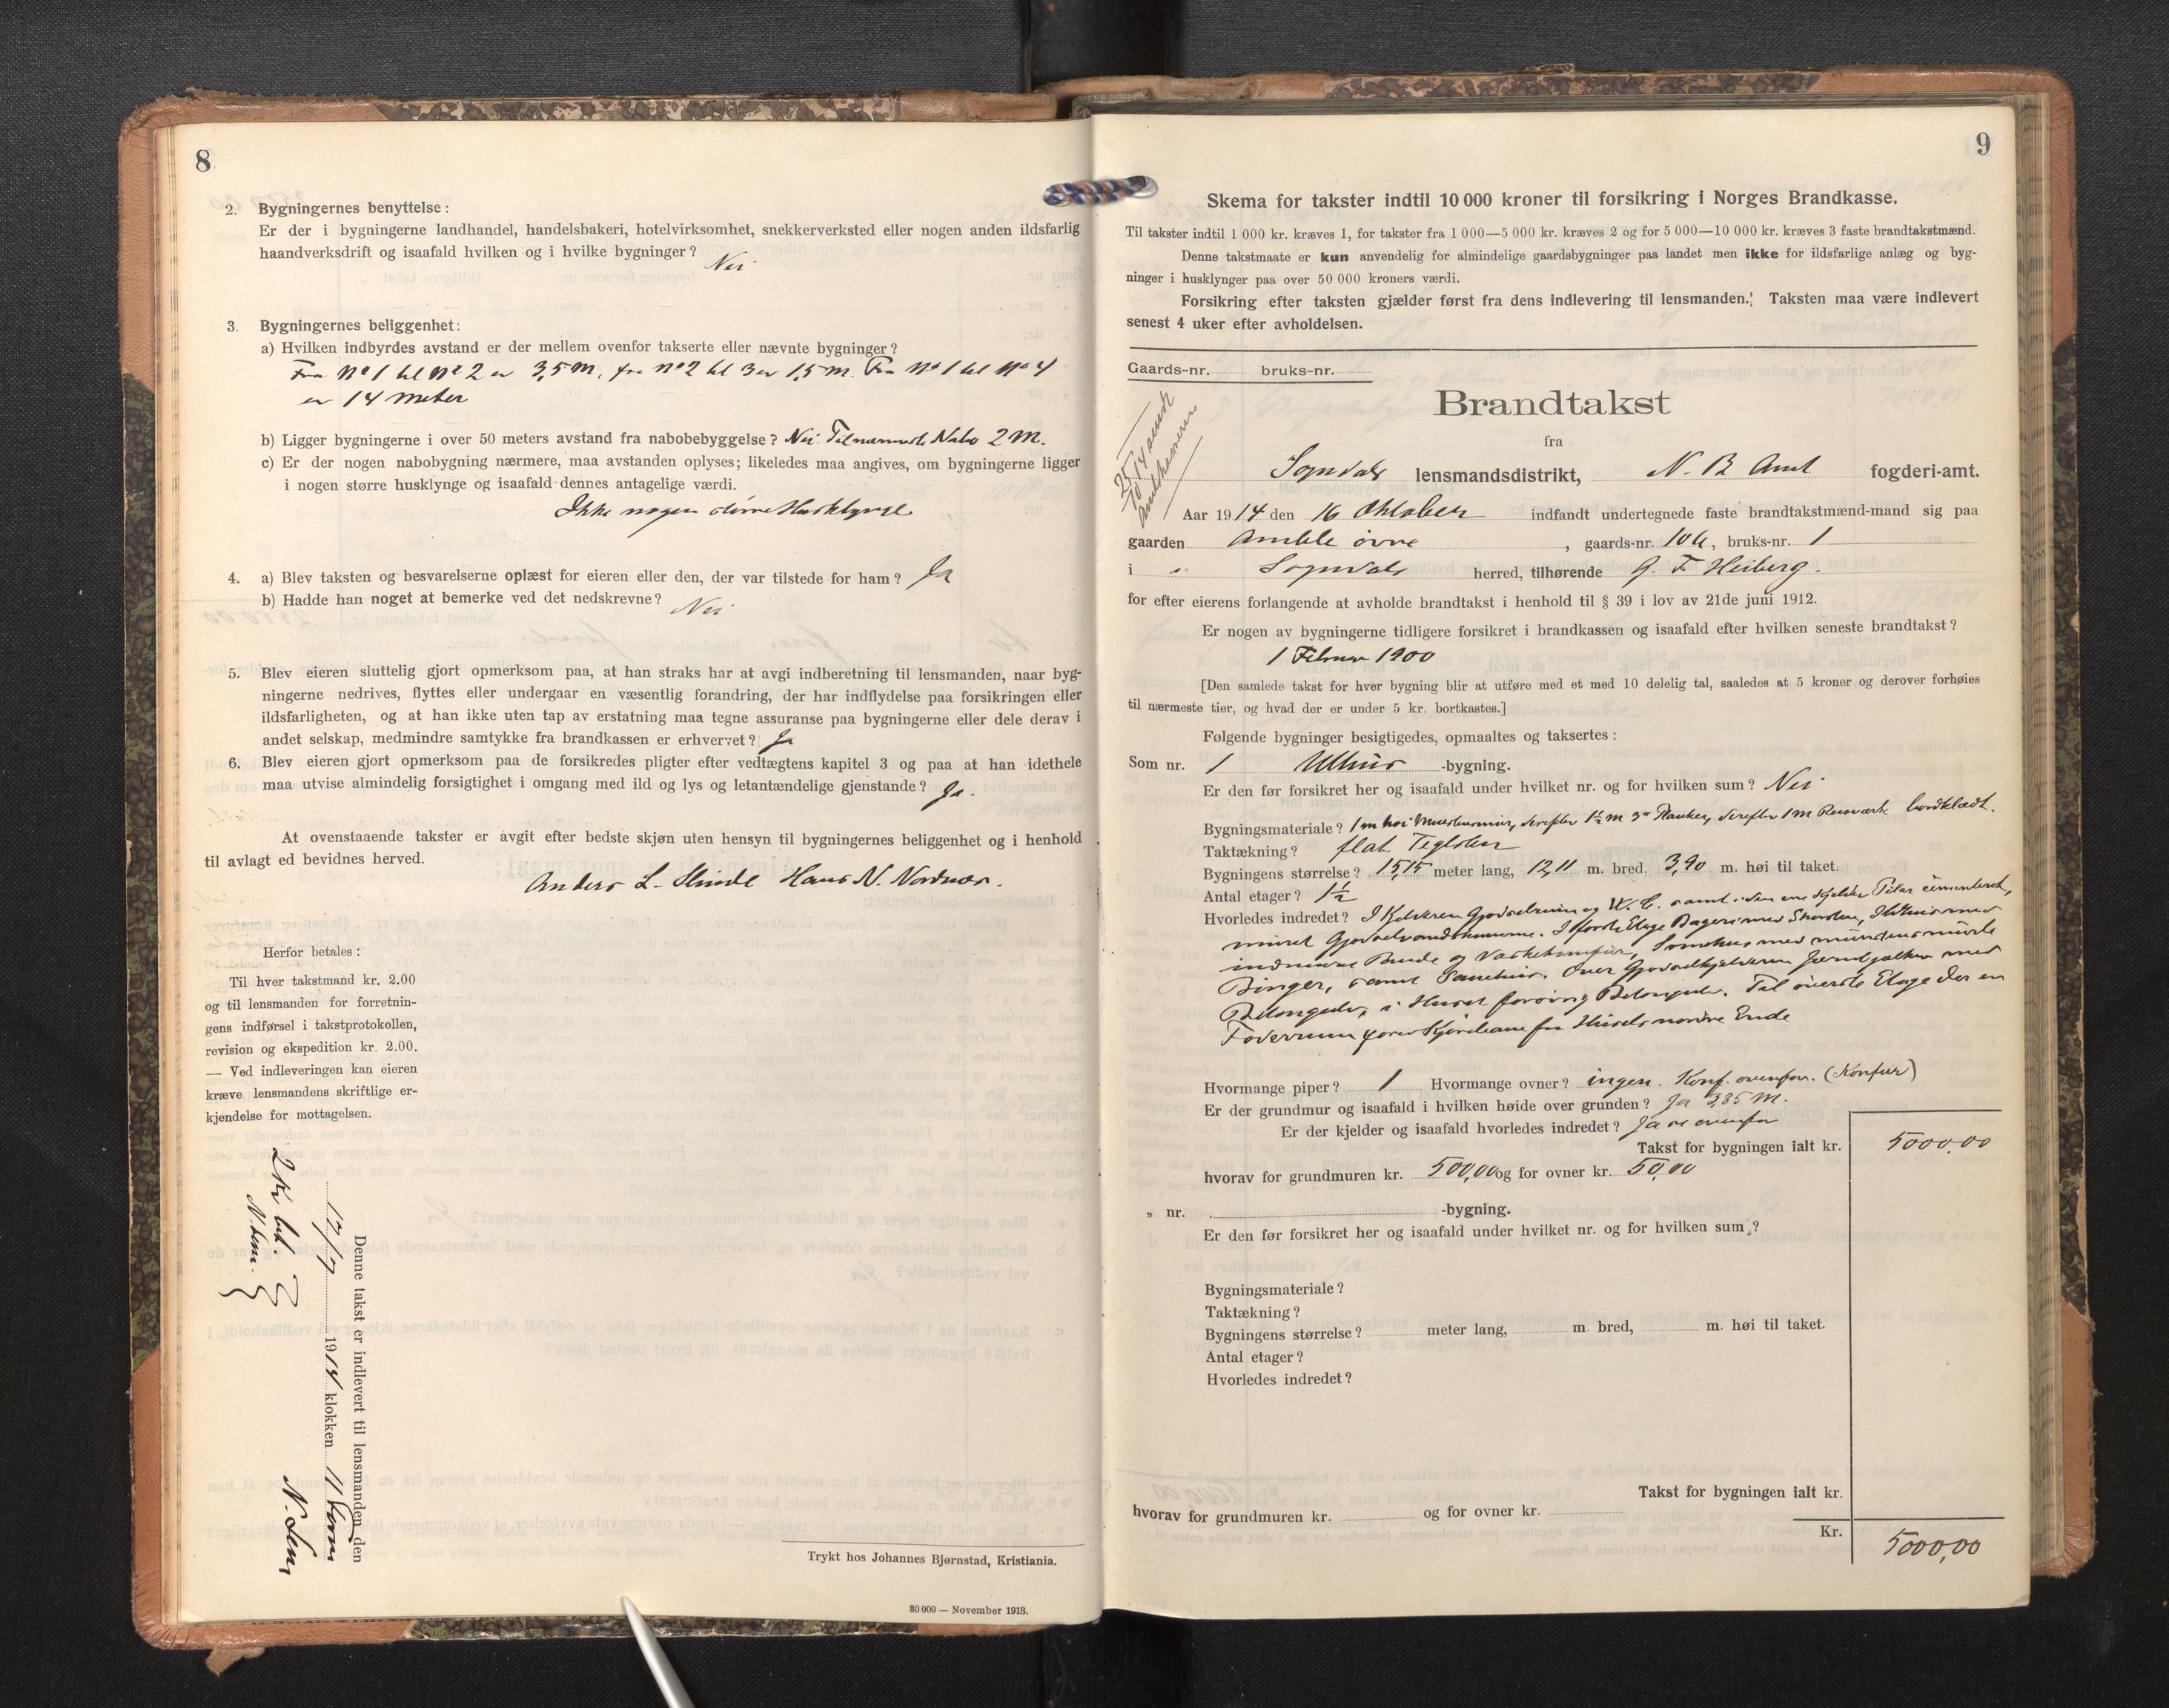 8
2. Bygningernes benyttelse:
Er der i bygningerne landhandel, handelsbakeri, hotelvirksomhet, snekkerverksted eller nogen anden ildsfarlig
haandverksdrift og isaafald hvilken og i hvilke bygninger? Nei
3. Bygningernes beliggenhet:
a) Hvilken indbyrdes avstand er der mellem ovenfor takserte eller nævnte bygninger?
Fra No 1 til No 2 er 3,5 m, fra No 2 til 3 er 1,5 m. Fra No 1 til No 4
er 14 meter
b) Ligger bygningerne i over 50 meters avstand fra nabobebyggelse? Nei. Nabo 2 m.
c) Er der nogen nabobygning nærmere, maa avstanden oplyses; likeledes maa angives, om bygningerne ligger
i nogen større husklynge og isaafald dennes antagelige værdi.
Ikke nogen större Husklynge
4. a) Blev taksten og besvarelserne oplæst for eieren eller den, der var tilstede for ham? Ja
b) Hadde han noget at bemerke ved det nedskrevne? Nei
5. Blev eieren sluttelig gjort opmerksom paa, at han straks har at avgi indberetning til lensmanden, naar byg-
ningerne nedrives, flyttes eller undergaar en væsentlig forandring, der har indflydelse paa forsikringen eller
ildsfarligheten, og at han ikke uten tap av erstatning maa tegne assuranse paa bygningerne eller dele derav i
andet selskap, medmindre samtykke fra brandkassen er erhvervet? Ja
6. Blev eieren gjort opmerksom paa de forsikredes pligter efter vedtægtens kapitel 3 og paa at han idethele
maa utvise almindelig forsigtighet i omgang med ild og lys og letantændelige gjenstande? Ja.
At ovenstaaende takster er avgit efter bedste skjøn uten hensyn til bygningernes beliggenhet og i henhold
til avlagt ed bevidnes herved.
Anders L. Hans N. Nordnæs.
Herfor betales:
Til hver takstmand kr. 2.00
og til lensmanden for forretnin-
gens indførsel i takstprotokollen,
revision og ekspedition kr. 2.00.
— Ved indleveringen kan eieren
kræve lensmandens skriftlige er-
kjendelse for mottagelsen.
2 Kr bet.
Denne takst er indlevert til lensmanden den
17/7 1914 klokken 11
Trykt hos Johannes Bjørnstad, Kristiania.
30 000 — November 1913.
9
Skema for takster indtil 10 000 kroner til forsikring i Norges Brandkasse.
Til takster indtil 1 000 kr. kræves 1, for takster fra 1 000—5 000 kr. kræves 2 og for 5 000—10 000 kr. kræves 3 faste brandtakstmænd.
Denne takstmaate er kun anvendelig for almindelige gaardsbygninger paa landet men ikke for ildsfarlige anlæg og byg-
ninger i husklynger paa over 50 000 kroners værdi.
Forsikring efter taksten gjælder først fra dens indlevering til lensmanden. Taksten maa være indlevert
senest 4 uker efter avholdelsen.
Gaards-nr. bruks-nr.
Brandtakst
fra
Sogndals lensmandsdistrikt, N. B. Amt fogderi-amt.
Aar 1914 den 16 Oktober indfandt undertegnede faste brandtakstmænd-mand sig paa
gaarden Amble övre, gaards-nr. 106, bruks-nr. 1
i " Sogndals herred, tilhørende G. F. Heiberg.
for efter eierens forlangende at avholde brandtakst i henhold til § 39 i lov av 21de juni 1912.
Er nogen av bygningerne tidligere forsikret i brandkassen og isaafald efter hvilken seneste brandtakst?
1 Februar 1900
[Den samlede takst for hver bygning blir at utføre med et med 10 delelig tal, saaledes at 5 kroner og derover forhøies
til nærmeste tier, og hvad der er under 5 kr. bortkastes.]
Følgende bygninger besigtigedes, opmaaltes og taksertes:
Som nr. 1 Uthus -bygning.
Er den før forsikret her og isaafald under hvilket nr. og for hvilken sum? Nei
Bygningsmateriale? 1 m höi derefter 1½ m 3" Planker, derefter 1 m Reisverk bordklædt.
Taktækning? flat Teglsten
Bygningens størrelse? 15,15 meter lang, 12,11 m. bred, 3,90 m. høi til taket.
Antal etager? 1½
Hvorledes indredet? I Kjelderen Gjödselrum og W. C. samt
muret I förste Etage Bageri med Skorsten, Ildhus med
indmuret Pande og Vaskekomfur,
Binger, samt Over Gjödselkjelderen med
i Huset forövrig Til överste Etage der er
Foderrum Kjörebane fra Husets nordre Ende
Hvormange piper? 1 Hvormange ovner? ingen. Konf. ovenfor. (Komfur)
Er der grundmur og isaafald i hvilken høide over grunden? Ja 2,35 M.
Er der kjelder og isaafald hvorledes indredet? Ja se ovenfor
Takst for bygningen ialt kr. 5000,00
hvorav for grundmuren kr. 500,00 og for ovner kr. 50,00
„ nr. -bygning.
Er den før forsikret her og isaafald under hvilket nr. og for hvilken sum?
Bygningsmateriale?
Taktækning?
Bygningens størrelse? meter lang, m. bred, m. høi til taket.
Antal etager?
Hvorledes indredet?
Takst for bygningen ialt kr.
hvorav for grundmuren kr. og for ovner kr.
Kr. 5000,00